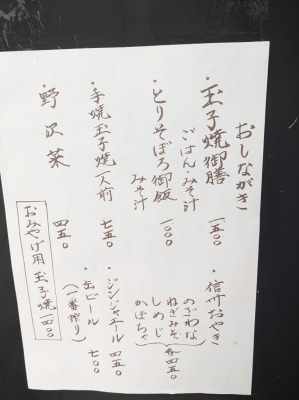 おしながき
・玉子焼御膳 一、五〇〇
ごはん・みそ汁
・とりそぼろ御飯 一、一〇〇
みそ汁
・手焼玉子焼一人前 七五〇
・野沢菜 四五〇
・信州おやき
のざわな
ねぎみそ
しめじ
かぼちゃ
各四五〇
・ジンジャエール 四五〇
・缶ビール 七〇〇
(一番搾り)
おみやげ用 玉子焼 一、四〇〇